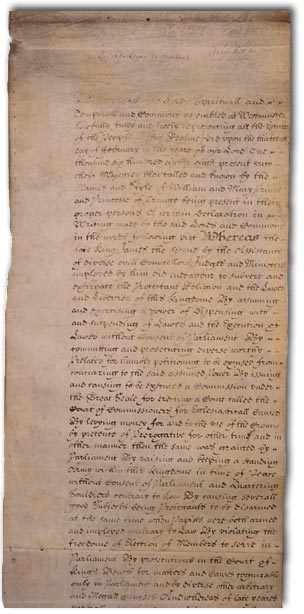 Whereas the Lords Spirituall and
Temporall and Comons assembled at Westminster
lawfully fully and freely representing all the Estates
of the People of this Realme did upon the thirteenth
day of February in the yeare of our Lord One
thousand six hundred eighty eight present unto
their Majesties then called and known by the
Names and Stile of William and Mary Prince
and Princesse of Orange being present in their
proper persons A certain Declaration in
Writing made by the said Lords and Comons
in the words following viz Whereas the
late King James the Second by the Assistance
of diverse evill Councellors Judges and Ministers
imployed by him did endeavour to subvert and
extirpate the Protestant Religion and the Lawes
and Liberties of this Kingdome By assuming
and exercising a power of Dispensing with
and suspending of Lawes and the Execution of
Lawes without Consent of Parliament By
committing and prosecuting diverse worthy
Prelates for humbly petitioning to be excused from
concurring to the said assumed Power By issuing
and causing to be executed a Commission under
the Great Seale for erecting a Court called the
Court of Commissioners for Ecclesiasticall Causes
By levying money for and to the use of the Crowne
by pretence of Prerogative for other time and in
other manner than the same was granted by
Parliament By raising and keeping a standing
Army within this Kingdome in time of Peace
without Consent of Parliament and Quartering
Souldiers contrary to Law By causing severall
good Subjects being Protestants to be disarmed
at the same time when Papists were both armed
and imployed contrary to Law By violating the
freedome of Election of Members to serve in
Parliament By prosecutions in the Court of
Kings Bench for matters and causes cognizable
only in Parliament and by diverse other arbitrary
and illegall courses And whereas of late yeares